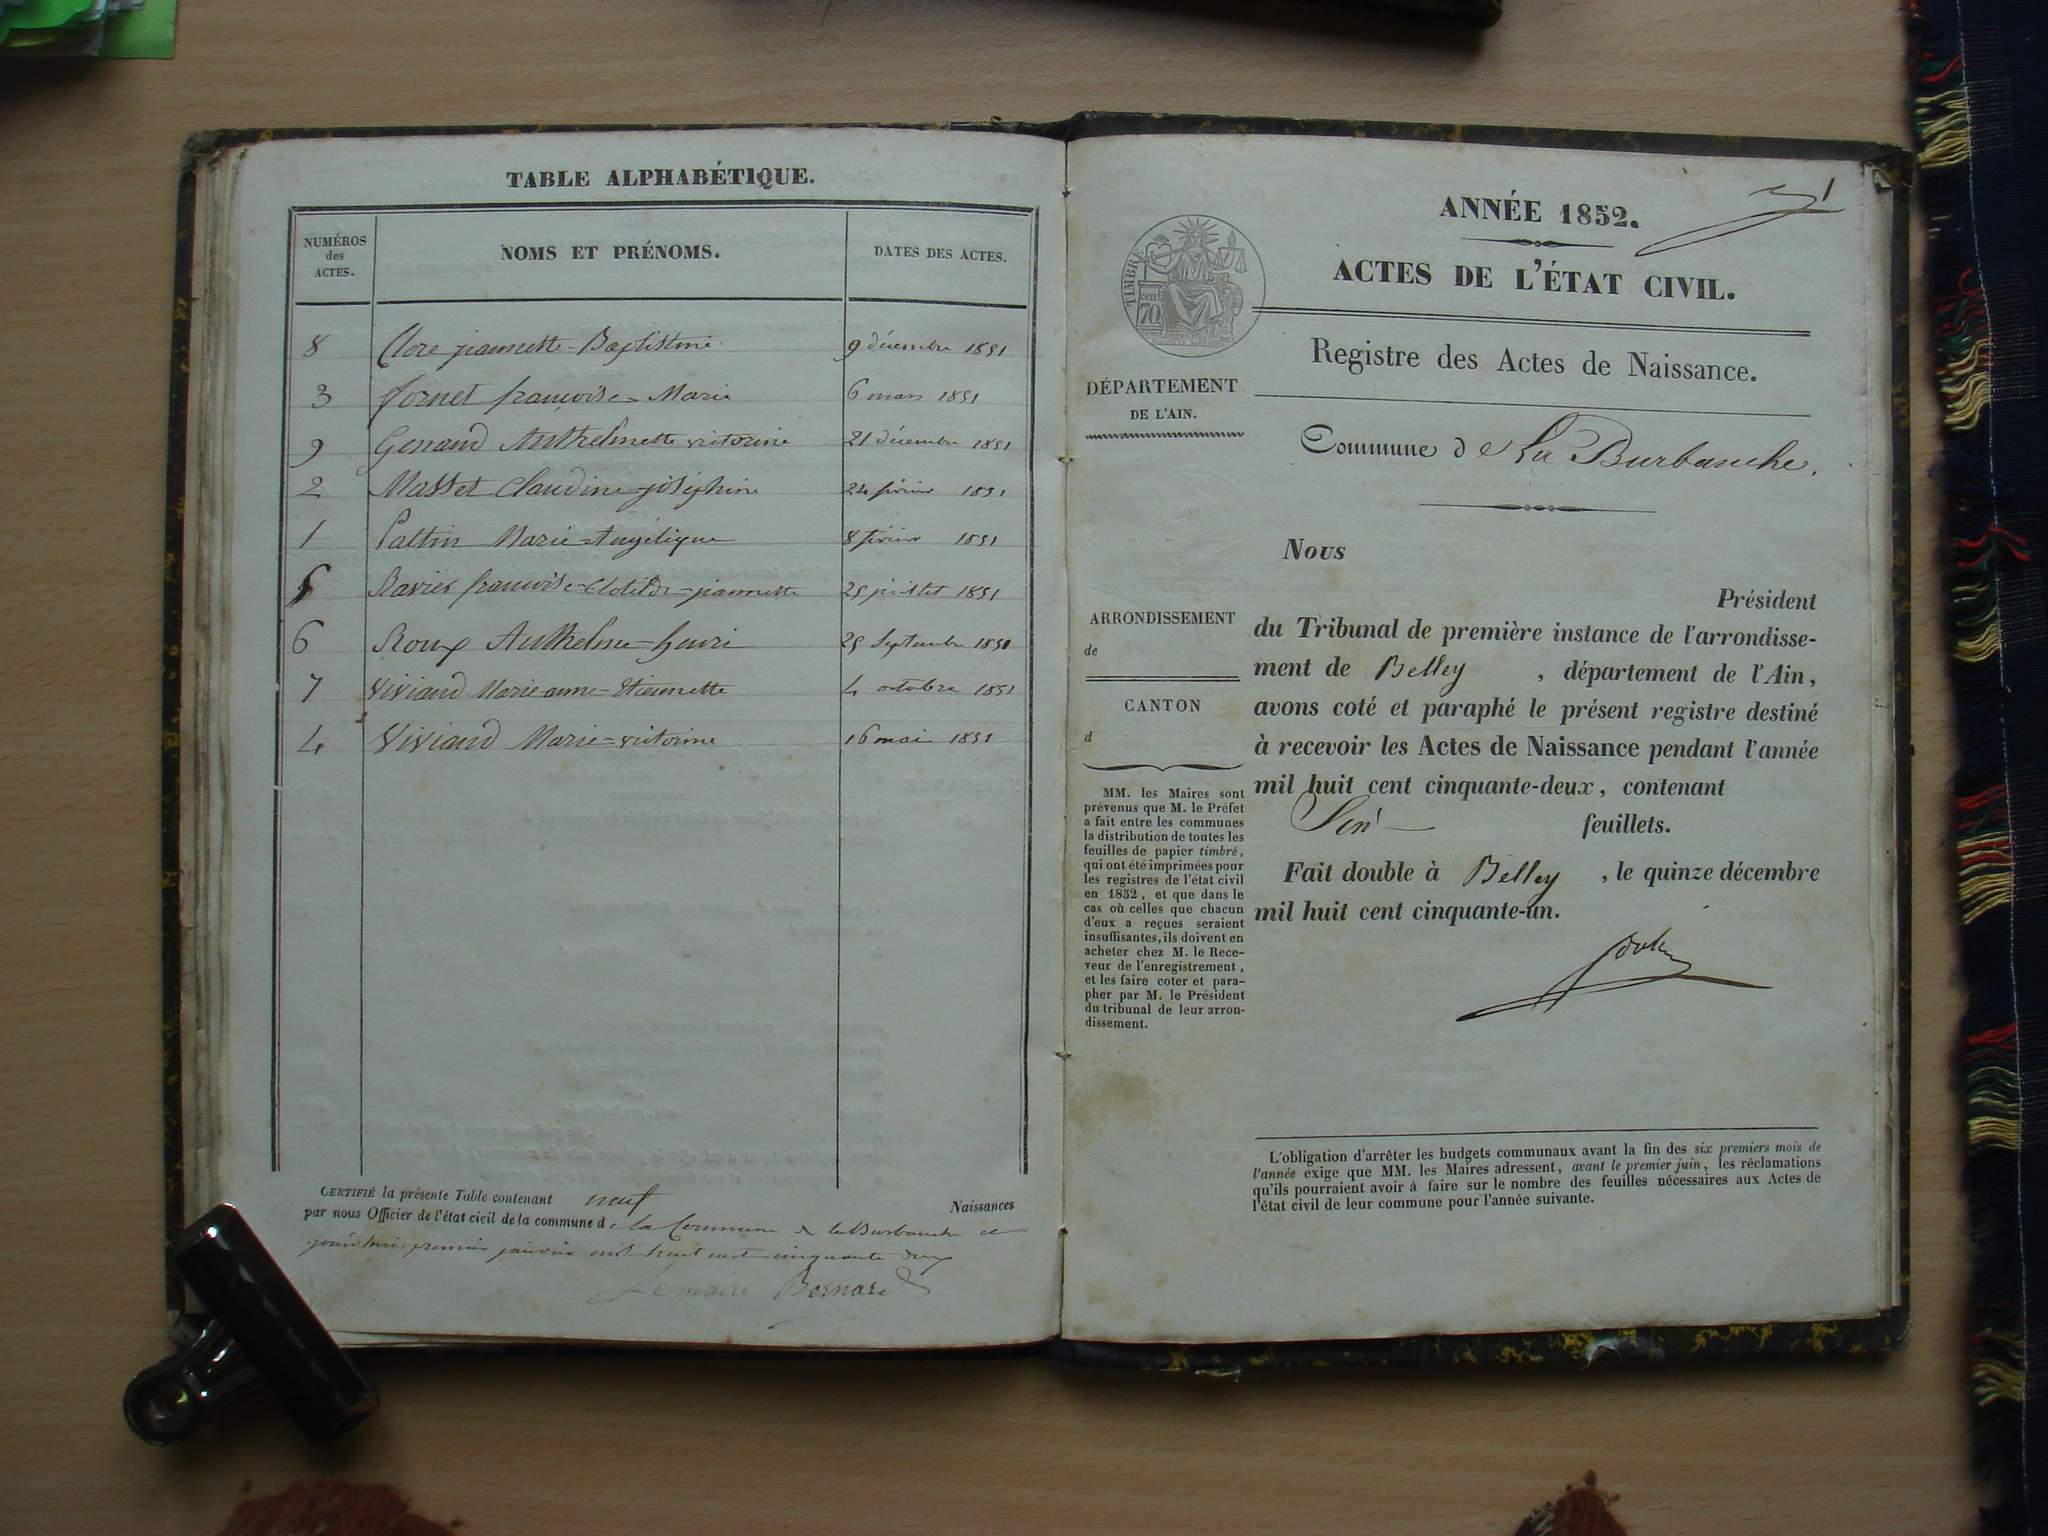 TABLE ALPHABÉTIQUE.
NUMÉROS
des
ACTES.
NOMS ET PRÉNOMS.
DATES DES ACTES.
8 Clere jeannette-Baptistine 9 décembre 1851
3 fornet françoise-Marie 6 mars 1851
9 Genand Anthelmette victorine 21 décembre 1851
2 Masset Claudine-joséphine 24 février 1851
1 Paltin Marie-Angélique 8 février 1851
5 Ravier françoise-Clotilde-jeannette 25 juillet 1851
6 Roux Anthelme-henri 25 Septembre 1851
7 Viviand Marie-anne-Etiennette 4 octobre 1851
4 Viviand Marie-victorine 16 mai 1851
CERTIFIÉ la présente Table contenant neuf Naissances
par nous Officier de l'état civil de la commune d e la Commune de la Burbanche ce
jourd'hui premier janvier mil huit cent cinquante deux
Le maire Bernard
1
ANNÉE 1852.
ACTES DE L'ÉTAT CIVIL.
TIMBRE
cent
70
Registre des Actes de Naissance.
DÉPARTEMENT
DE L'AIN.
Commune d e La Burbanche.
ARRONDISSEMENT
de
CANTON
d
MM. les Maires sont
prévenus que M. le Préfet
a fait entre les communes
la distribution de toutes les
feuilles de papier timbré,
qui ont été imprimées pour
les registres de l'état civil
en 1852, et que dans le
cas où celles que chacun
d'eux a reçues seraient
insuffisantes, ils doivent en
acheter chez M. le Rece-
veur de l'enregistrement,
et les faire coter et para-
pher par M. le Président
du tribunal de leur arron-
dissement.
Nous
Président
du Tribunal de première instance de l'arrondisse-
ment de Belley, département de l'Ain,
avons coté et paraphé le présent registre destiné
à recevoir les Actes de Naissance pendant l'année
mil huit cent cinquante-deux, contenant
feuillets.
Fait double à Belley, le quinze décembre
mil huit cent cinquante-un.
L'obligation d'arrêter les budgets communaux avant la fin des six premiers mois de
l'année exige que MM. les Maires adressent, avant le premier juin, les réclamations
qu'ils pourraient avoir à faire sur le nombre des feuilles nécessaires aux Actes de
l'état civil de leur commune pour l'année suivante.